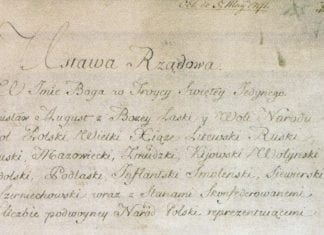 d. 3 May 1791
Ustawa Rządowa.
W Imie Boga w Troycy Swiętey Jedynego.
isław August z Bożey Łaski y Woli Narodu
ol Polski, Wielki Xiąże Litewski, Ruski
uski, Mazowiecki, Żmudzki, Kijowski, Wołyński
dolski, Podlaski, Inflantski, Smoleński, Siewierski
zerniechowski wraz z Stanami Skonfederowanemi
liczbie podwoyney Naród Polski reprezentuiącemi